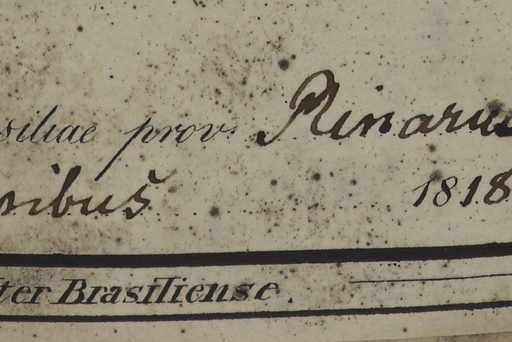 siliae prov. Minarum
ribus 1818
ter Brasiliense.